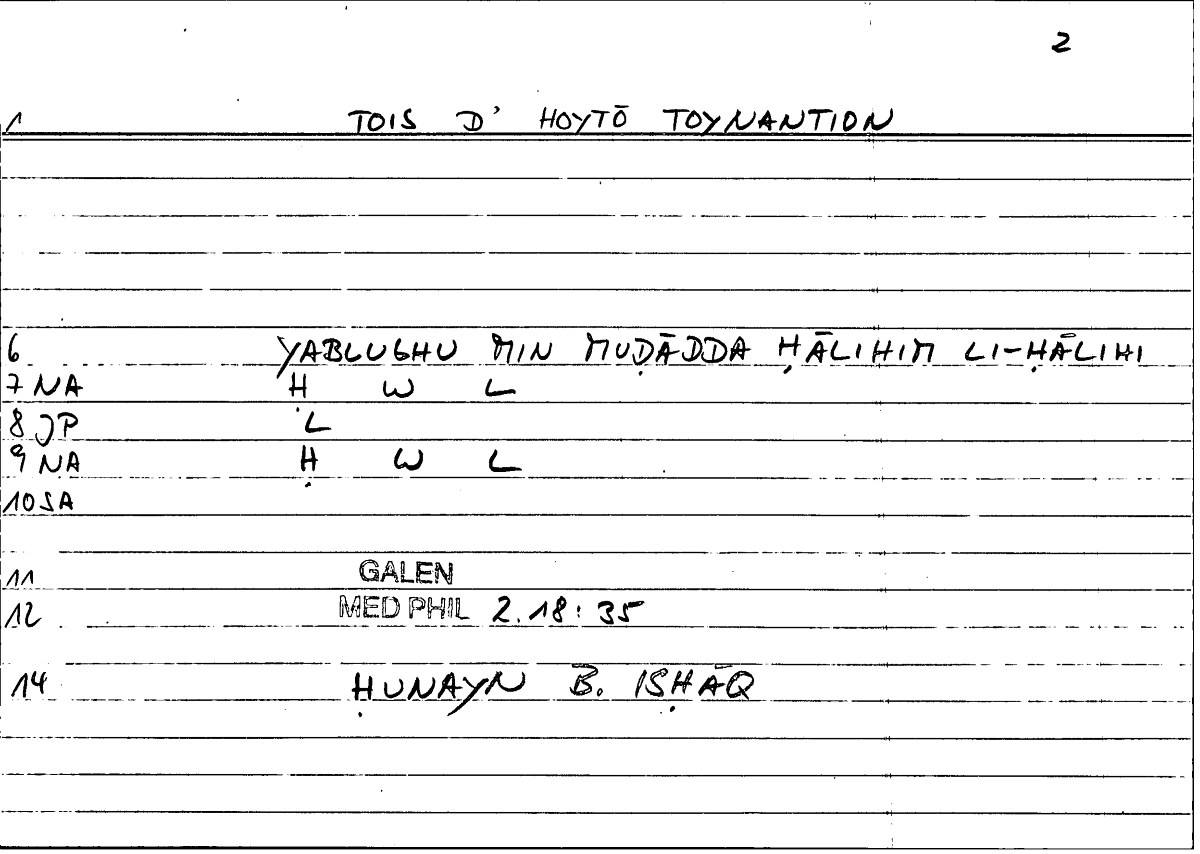 2
1 TOIS D' HOYTŌ TOYNANTION
6 YABLUGHU MIN MUḌĀDDA ḤĀLIHIM LI-ḤĀLIHI
7 NA Ḥ W L
8 JP L
9 NA Ḥ W L
10 SA
11 GALEN
12 MED PHIL 2.18:35
14 ḤUNAYN B. ISḤĀQ